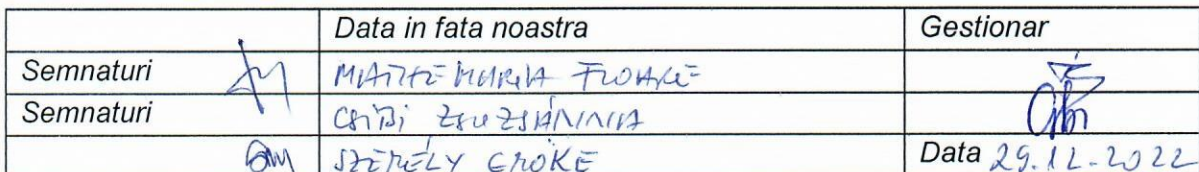 Data in fata noastra Gestionar
Semnaturi MARIA FLOARE
Semnaturi CSIBI ZSUZSÁNNA
SZEKELY ENIKE Data 29.12.2022